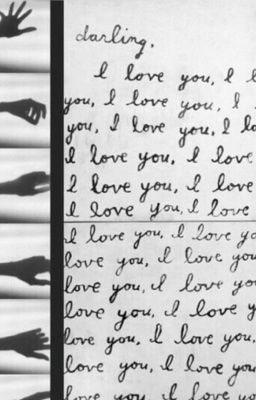 darling,
I love you, I l
you, I love you, I
you, I love you, I lo
I love you, I love
I love you, I love
I love you, I love
I love you, I love yo
love you, I love you
love you, I love you
love you, I love y
love you, I love you,
love you, I love you
love you, I love you